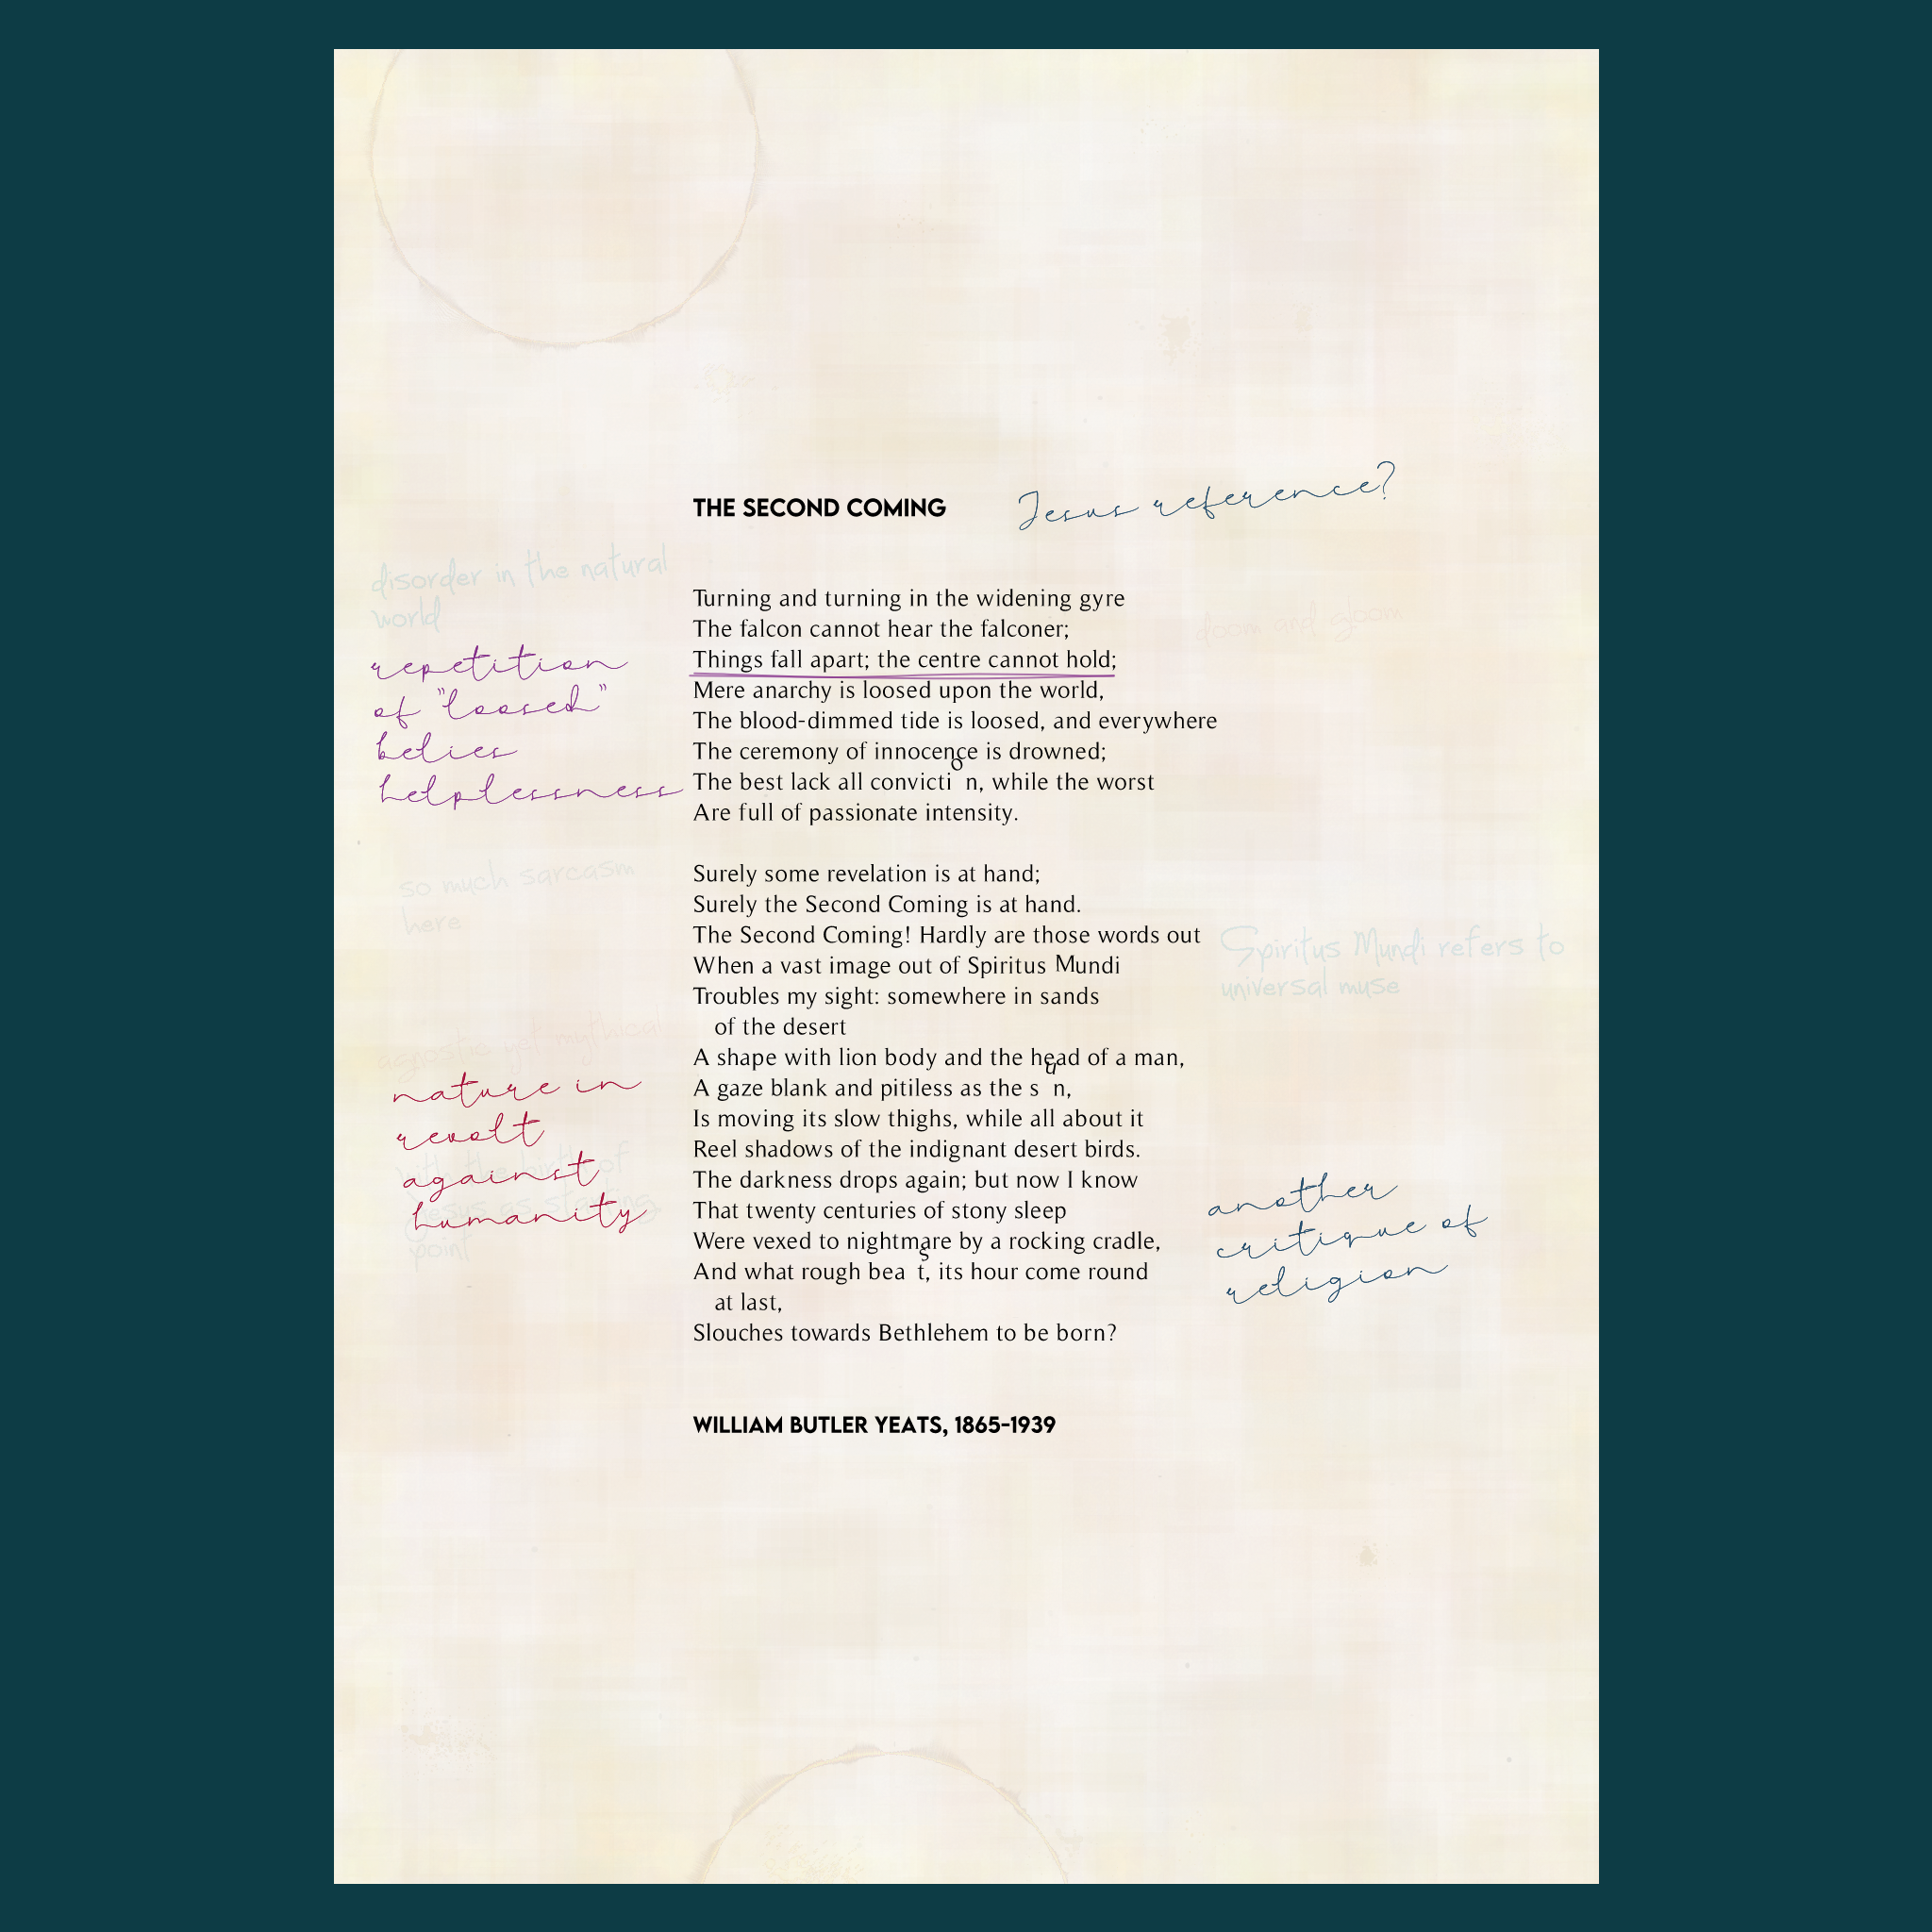 THE SECOND COMING
Jesus reference?
disorder in the natural
world
doom and gloom
Turning and turning in the widening gyre
The falcon cannot hear the falconer;
Things fall apart; the centre cannot hold;
Mere anarchy is loosed upon the world,
The blood-dimmed tide is loosed, and everywhere
The ceremony of innocence is drowned;
The best lack all conviction, while the worst
Are full of passionate intensity.
repetition
of "loosed"
belies
helplessness
so much sarcasm
here
Surely some revelation is at hand;
Surely the Second Coming is at hand.
The Second Coming! Hardly are those words out
When a vast image out of Spiritus Mundi
Troubles my sight: somewhere in sands
of the desert
A shape with lion body and the head of a man,
A gaze blank and pitiless as the sun,
Is moving its slow thighs, while all about it
Reel shadows of the indignant desert birds.
The darkness drops again; but now I know
That twenty centuries of stony sleep
Were vexed to nightmare by a rocking cradle,
And what rough beast, its hour come round
at last,
Slouches towards Bethlehem to be born?
Spiritus Mundi refers to
universal muse
agnostic yet mythical
nature in
revolt
against
humanity
with the birth of
Jesus as starting
point
another
critique of
religion
WILLIAM BUTLER YEATS, 1865-1939